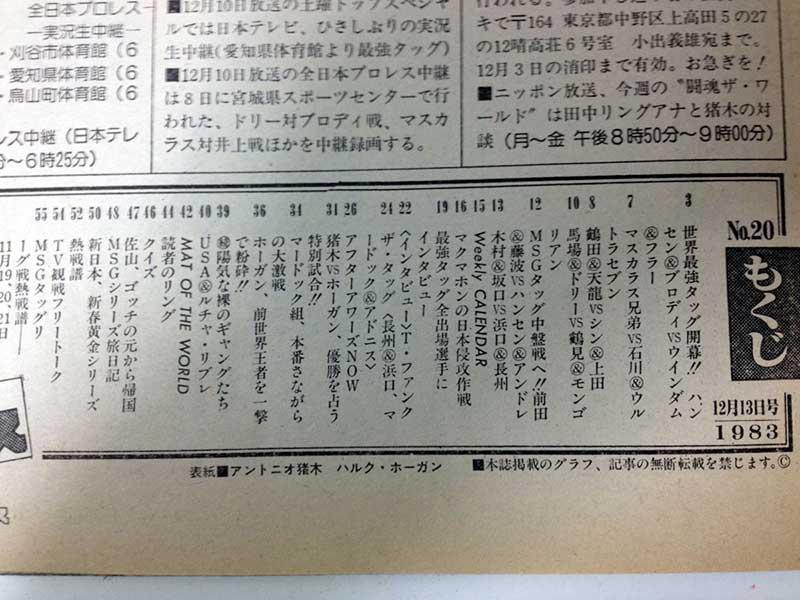 全日本プロレス―
―実況生中継―
・刈谷市体育館(6
・愛知県体育館(6
・烏山町体育館(6
レス中継(日本テレ
分〜6時25分)
■12月10日放送の土曜トップスペシャ
ルでは日本テレビ、ひさしぶりの実況
生中継(愛知県体育館より最強タッグ)
■12月10日放送の全日本プロレス中継
は8日に宮城県スポーツセンターで行
われた、ドリー対ブロディ戦、マスカ
ラス対井上戦ほかを中継録画する。
キで〒164 東京都中野区上高田5の27
の12晴高荘6号室 小出義雄宛まで。
12月3日の消印まで有効。お急ぎを!
■ニッポン放送、今週の〝闘魂ザ・ワ
ールド〟は田中リングアナと猪木の対
談(月〜金 午後8時50分〜9時00分)
No.20
もくじ
12月13日号
1983
3 世界最強タッグ開幕!! ハン
セン&ブロディVSウインダム
&フラー
7 マスカラス兄弟VS石川&ウル
トラセブン
8 鶴田&天龍VSシン&上田
10 馬場&ドリーVS鶴見&モンゴ
リアン
12 MSGタッグ中盤戦へ!! 前田
&藤波VSハンセン&アンドレ
13 木村&坂口VS浜口&長州
15 Weekly CALENDAR
16 マクマホンの日本侵攻作戦
19 最強タッグ全出場選手に
インタビュー
22 〈インタビュー〉T・ファンク
24 ザ・タッグ〈長州&浜口、マ
ードック&アドニス〉
26 アフターアワーズNOW
31 猪木VSホーガン、優勝を占う
特別試合!!
34 マードック組、本番さながら
の大激戦
36 ホーガン、前世界王者を一撃
で粉砕!!
39 ㊙陽気な裸のギャングたち
40 USA&ルチャ・リブレ
42 MAT OF THE WORLD
44 読者のリング
46 クイズ
47 佐山、ゴッチの元から帰国
48 MSGシリーズ旅日記
50 新日本、新春黄金シリーズ
52 熱戦譜
54 TV観戦フリートーク
55 MSGタッグリ
ーグ戦熱戦譜――
11月19、20、21日
表紙■アントニオ猪木 ハルク・ホーガン
■本誌掲載のグラフ、記事の無断転載を禁じます。©